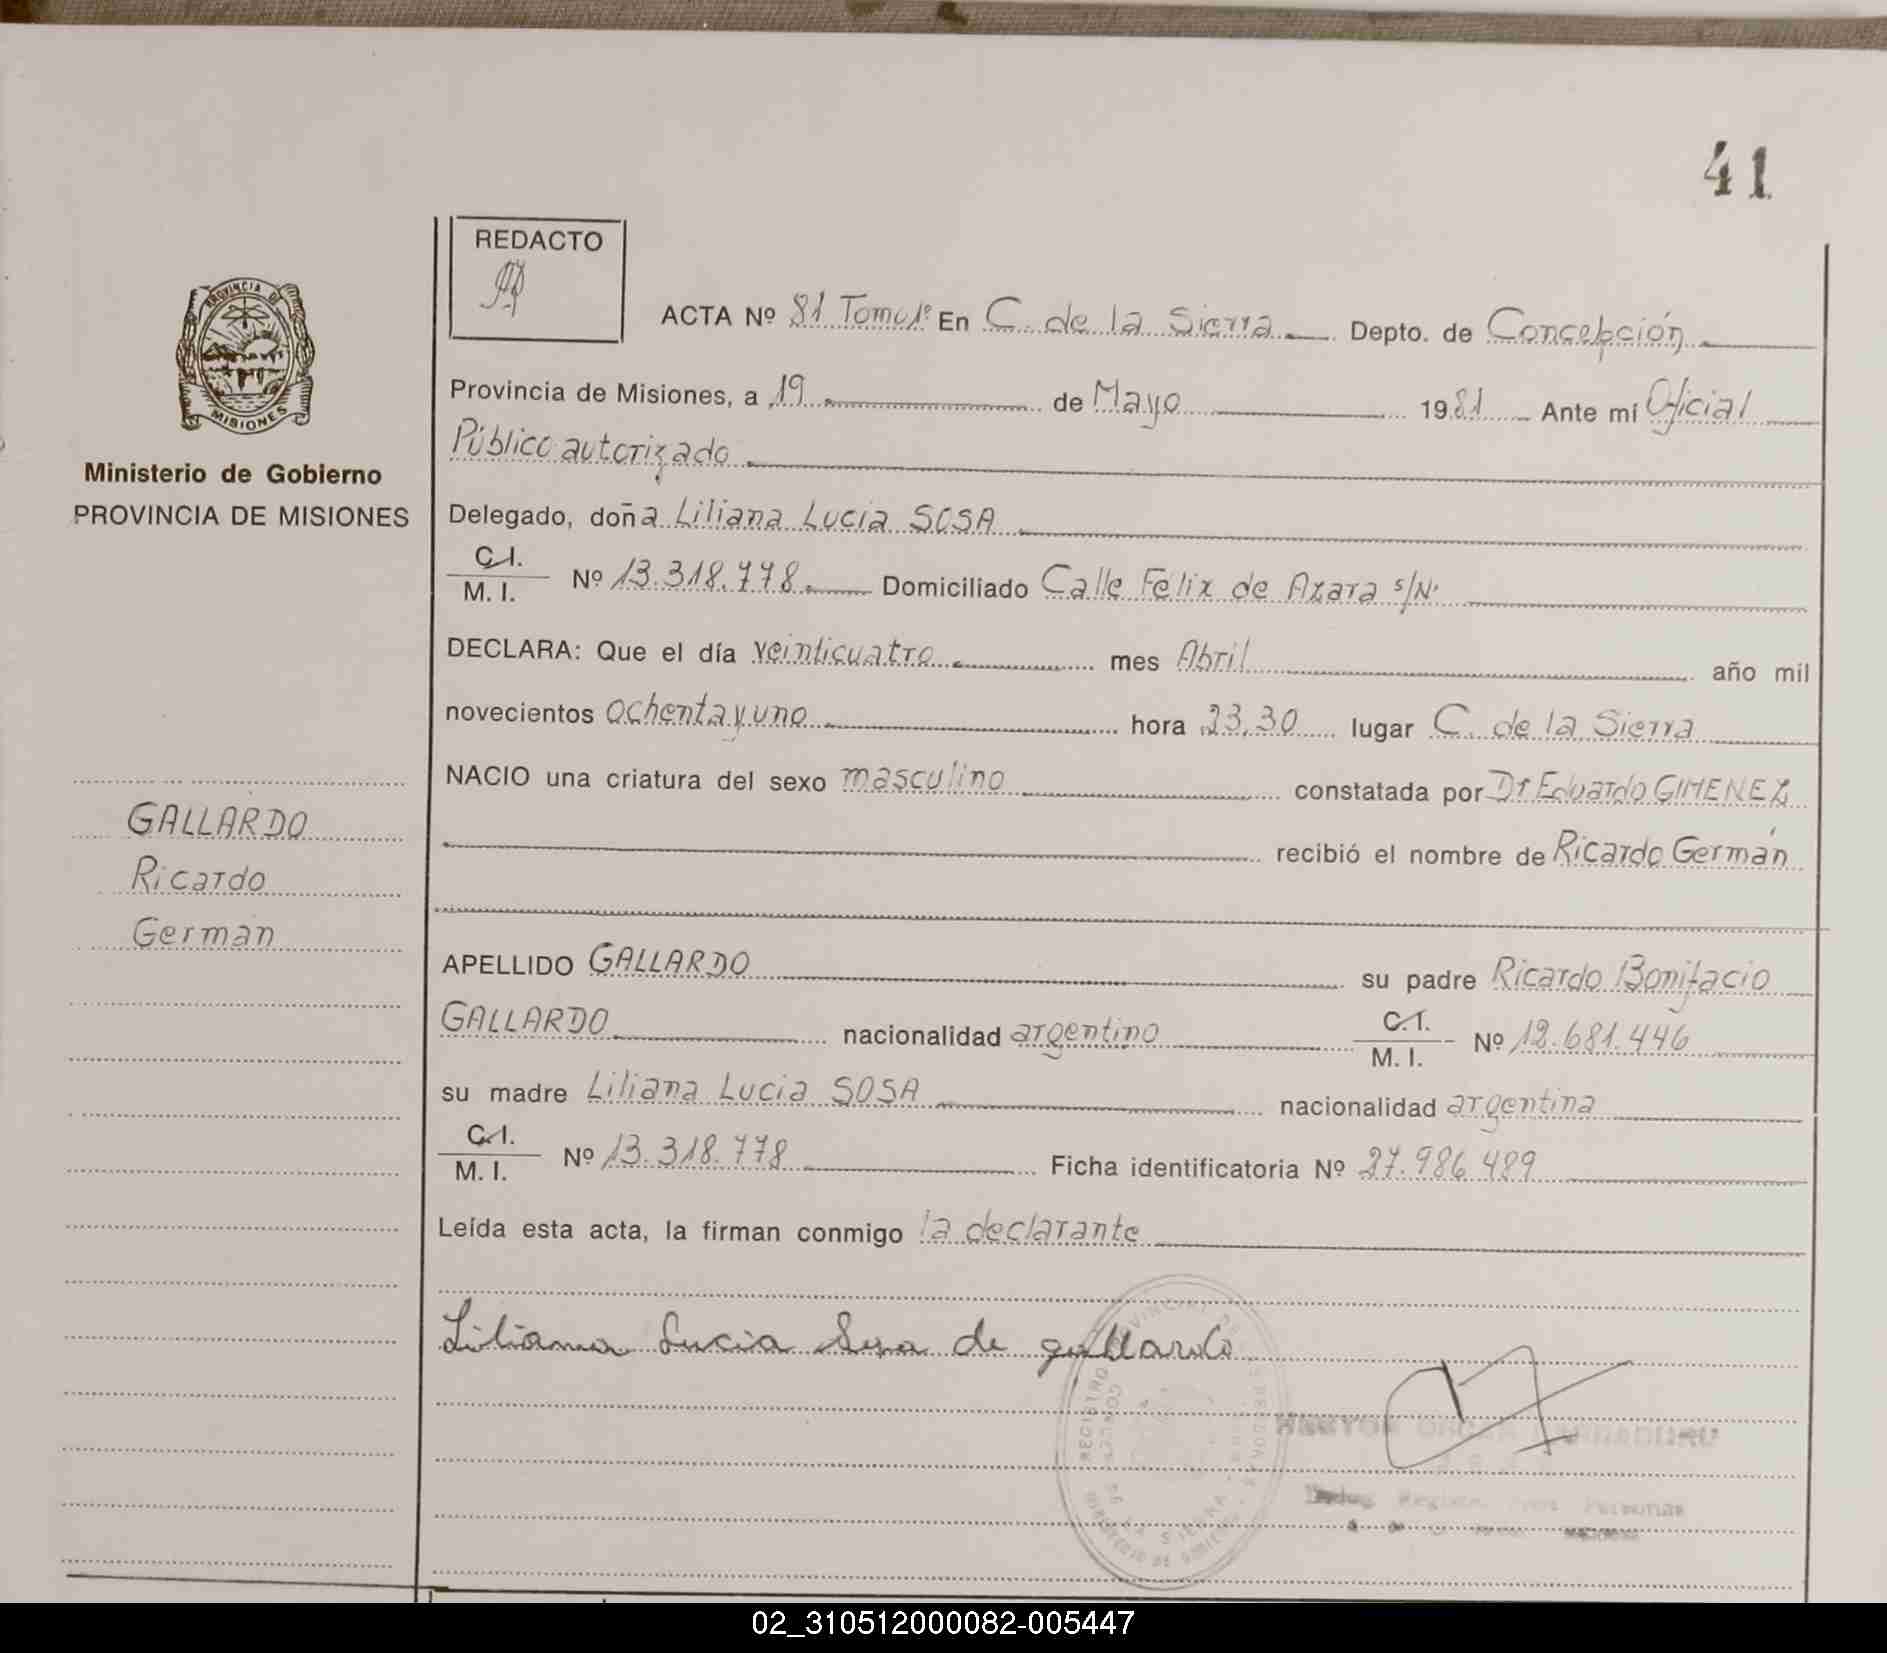 41
REDACTO
PROVINCIA DE
MISIONES
Ministerio de Gobierno
PROVINCIA DE MISIONES
ACTA Nº 81 Tomo 1º En C. de la Sierra Depto. de Concepción
Provincia de Misiones, a 19 de Mayo 1981 Ante mí Oficial
Público autorizado
Delegado, doña Liliana Lucia SOSA
C.I.
M. I. Nº 13.318.778 Domiciliado Calle Félix de Azara s/Nº
DECLARA: Que el día veinticuatro mes Abril año mil
novecientos ochenta y uno hora 23,30 lugar C. de la Sierra
NACIO una criatura del sexo masculino constatada por Dr Eduardo GIMENEZ
recibió el nombre de Ricardo Germán
GALLARDO
Ricardo
Germán
APELLIDO GALLARDO su padre Ricardo Bonifacio
GALLARDO nacionalidad argentino C.I.
M. I. Nº 12.681.446
su madre Liliana Lucia SOSA nacionalidad argentina
C.I.
M. I. Nº 13.318.778 Ficha identificatoria Nº 27.986.489
Leída esta acta, la firman conmigo la declarante
Liliana Lucia Sosa de gallardo
02_310512000082-005447